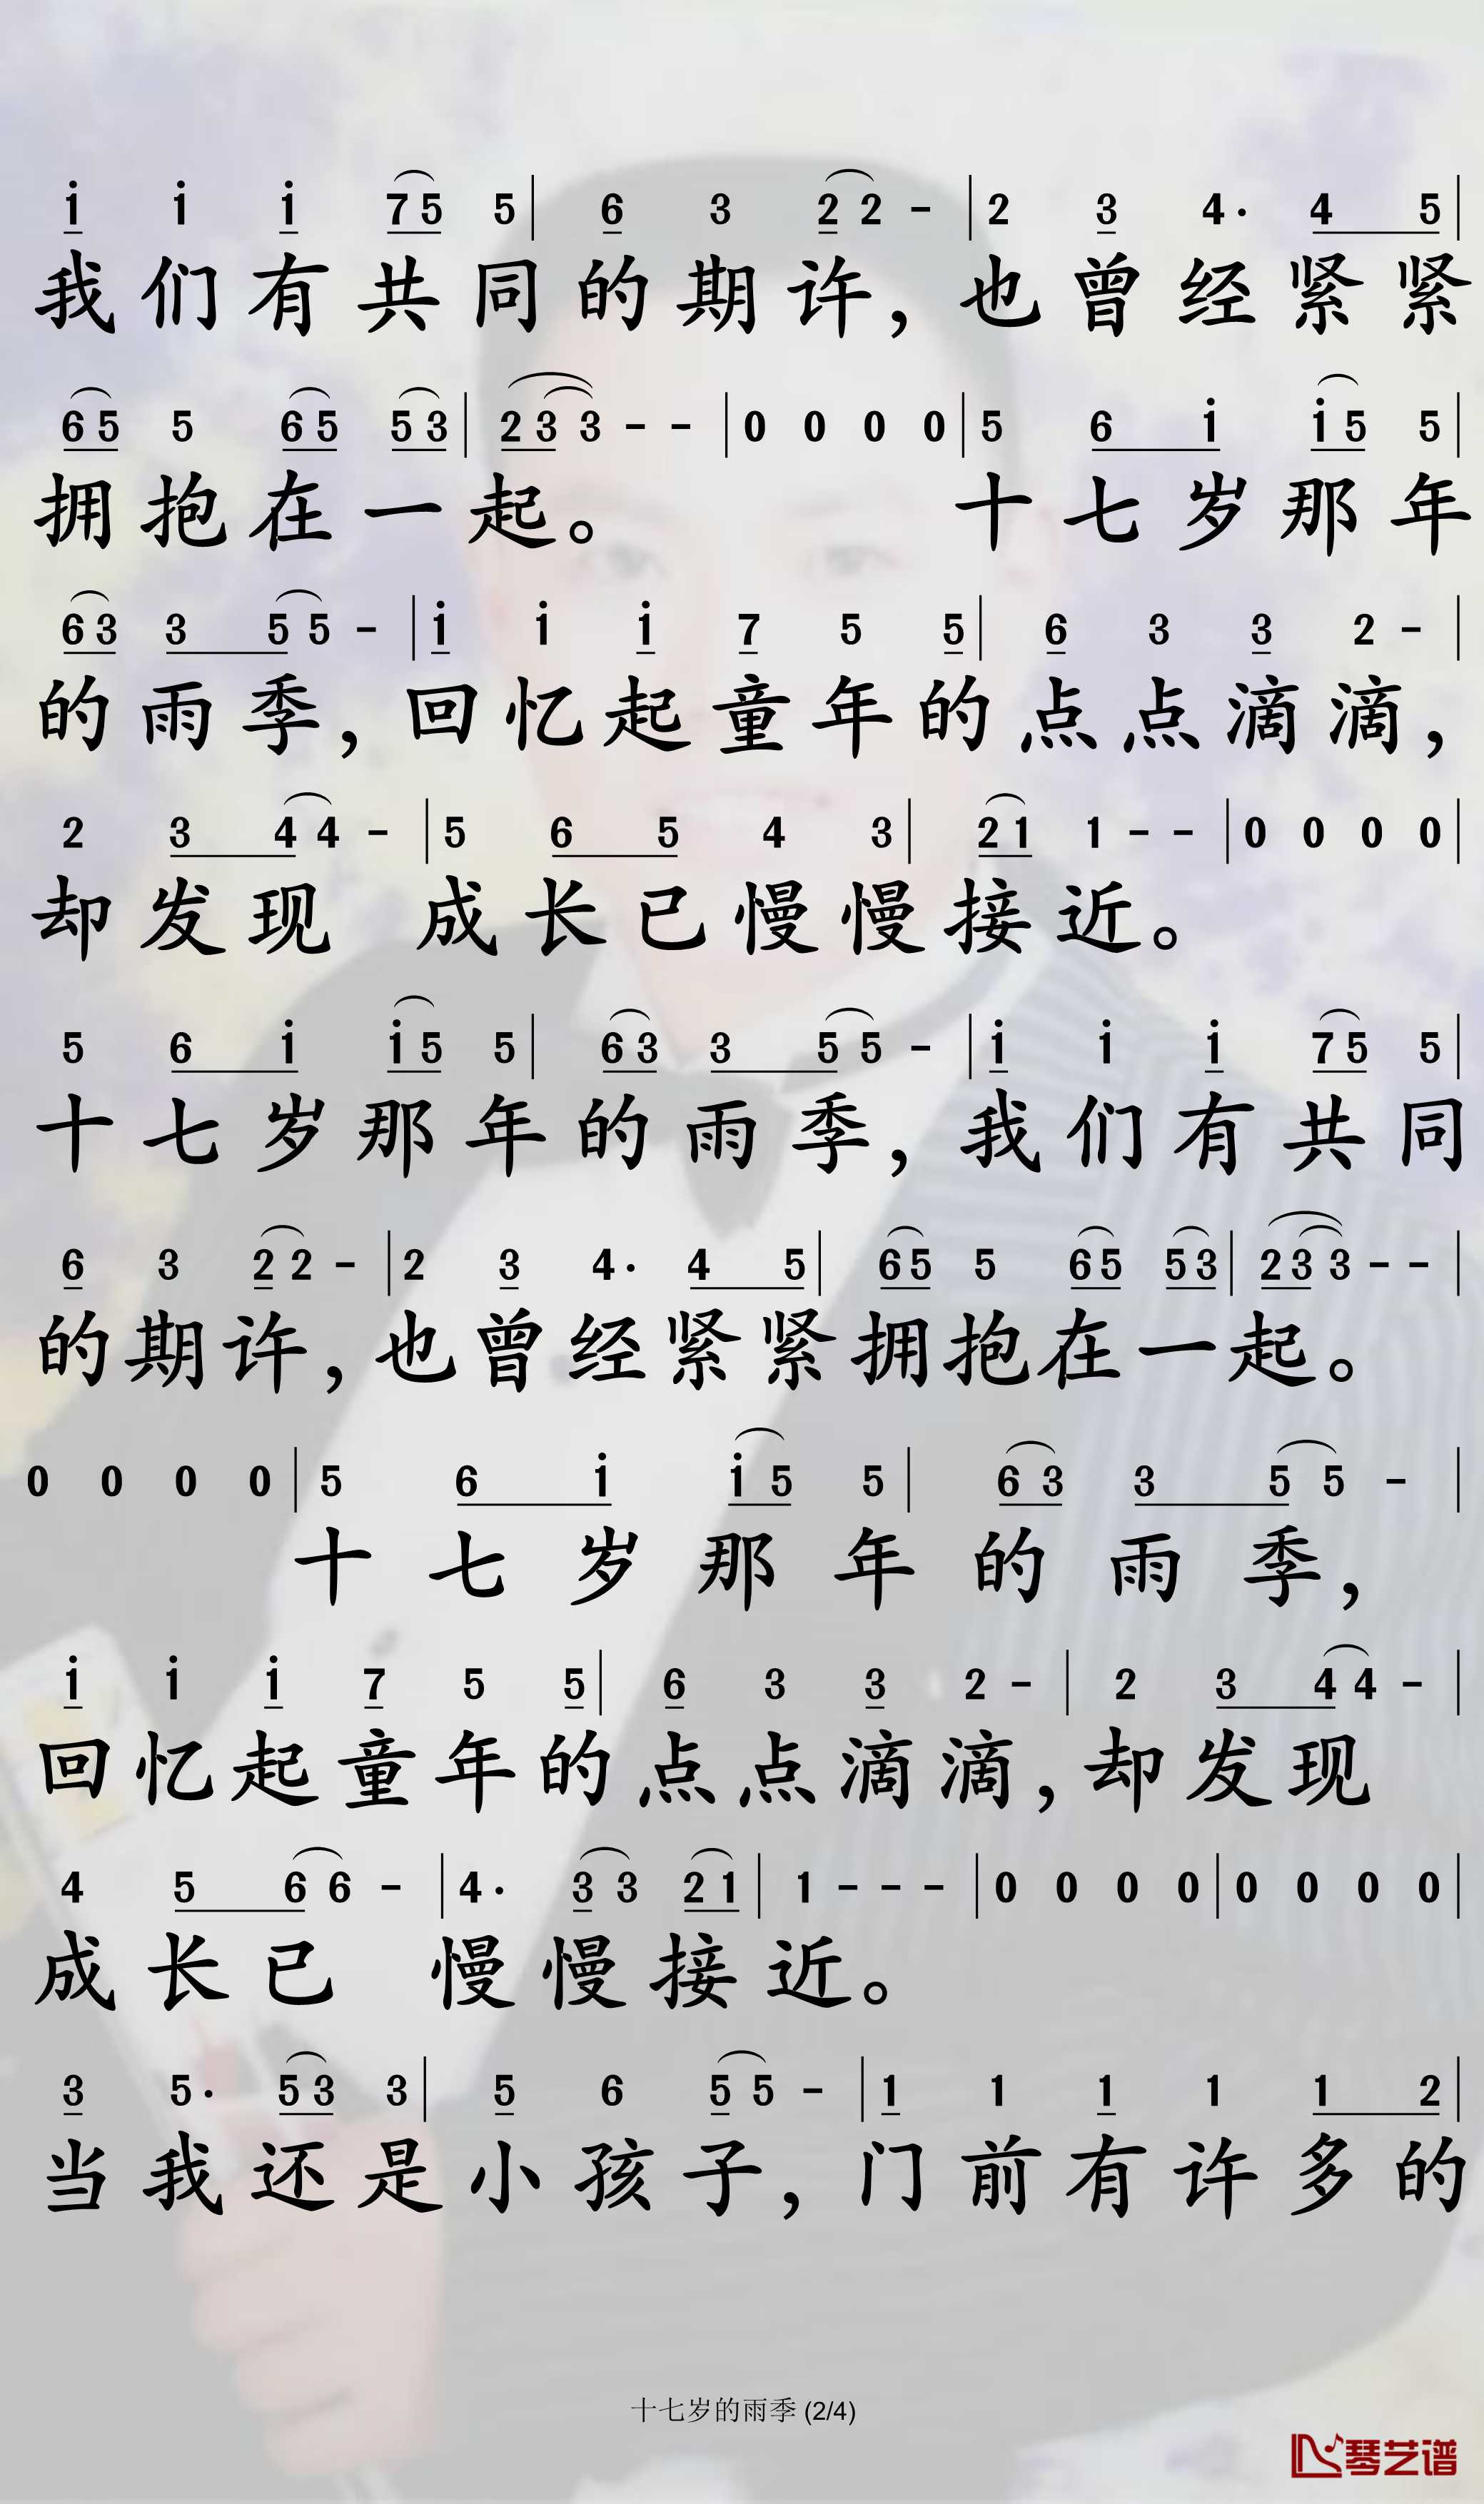 i i i 7 5 5 | 6 3 2 2 - | 2 3 4· 4 5 |
我们有共同的期许，也曾经紧紧
6 5 5 6 5 5 3 | 2 3 3 - - | 0 0 0 0 | 5 6 i i 5 5 |
拥抱在一起。 十七岁那年
6 3 3 5 5 - | i i i 7 5 5 | 6 3 3 2 - |
的雨季，回忆起童年的点点滴滴，
2 3 4 4 - | 5 6 5 4 3 | 2 1 1 - - | 0 0 0 0 |
却发现 成长已慢慢接近。
5 6 i i 5 5 | 6 3 3 5 5 - | i i i 7 5 5 |
十七岁那年的雨季，我们有共同
6 3 2 2 - | 2 3 4· 4 5 | 6 5 5 6 5 5 3 | 2 3 3 - - |
的期许，也曾经紧紧拥抱在一起。
0 0 0 0 | 5 6 i i 5 5 | 6 3 3 5 5 - |
十七岁那年的雨季，
i i i 7 5 5 | 6 3 3 2 - | 2 3 4 4 - |
回忆起童年的点点滴滴，却发现
4 5 6 6 - | 4· 3 3 2 1 | 1 - - - | 0 0 0 0 | 0 0 0 0 |
成长已 慢慢接近。
3 5· 5 3 3 | 5 6 5 5 - | 1 1 1 1 1 2 |
当我还是小孩子，门前有许多的
十七岁的雨季 (2/4)
琴艺谱